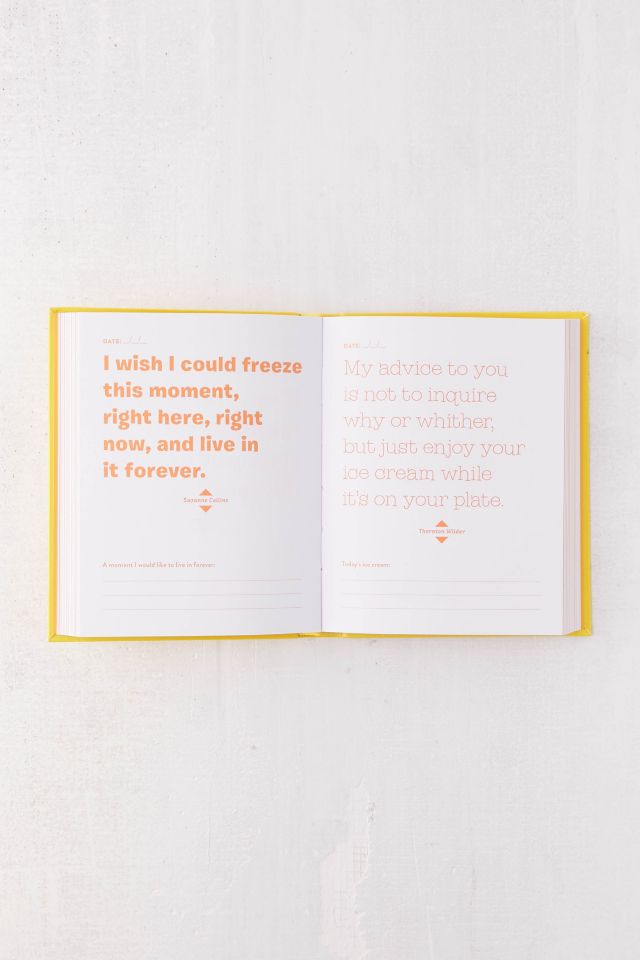 DATE: / /
I wish I could freeze
this moment,
right here, right
now, and live in
it forever.
Suzanne Collins
A moment I would like to live in forever:
DATE: / /
My advice to you
is not to inquire
why or whither,
but just enjoy your
ice cream while
it's on your plate.
Thornton Wilder
Today's ice cream: